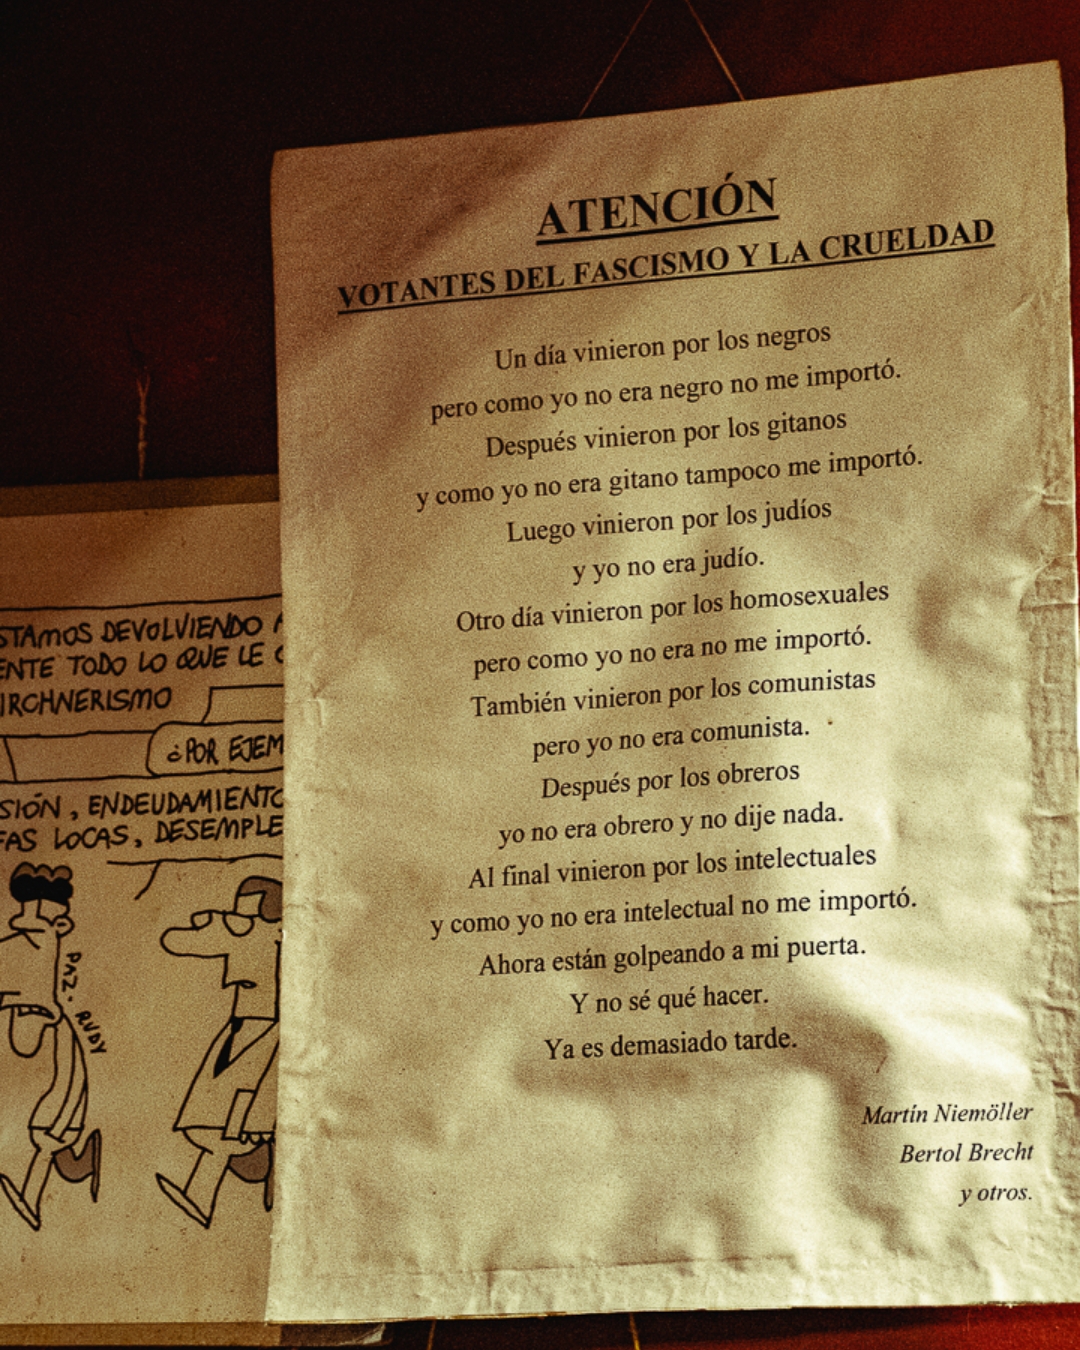 ATENCIÓN
VOTANTES DEL FASCISMO Y LA CRUELDAD
Un día vinieron por los negros
pero como yo no era negro no me importó.
Después vinieron por los gitanos
y como yo no era gitano tampoco me importó.
Luego vinieron por los judíos
y yo no era judío.
Otro día vinieron por los homosexuales
pero como yo no era no me importó.
También vinieron por los comunistas
pero yo no era comunista.
Después por los obreros
yo no era obrero y no dije nada.
Al final vinieron por los intelectuales
y como yo no era intelectual no me importó.
Ahora están golpeando a mi puerta.
Y no sé qué hacer.
Ya es demasiado tarde.
Martín Niemöller
Bertol Brecht
y otros.
STAMOS DEVOLVIENDO
ENTE TODO LO QUE LE
IRCHNERISMO
¿POR EJEM
SIÓN, ENDEUDAMIENTO
FAS LOCAS, DESEMPLE
PAZ. RUDY